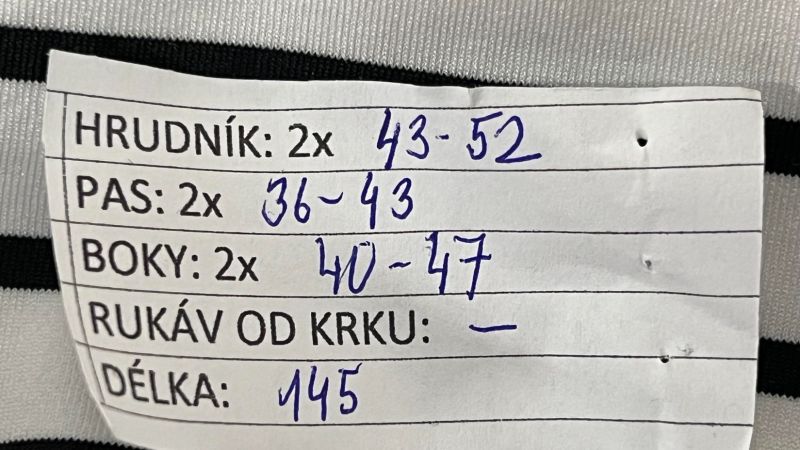 HRUDNÍK: 2x 43-52
PAS: 2x 36-43
BOKY: 2x 40-47
RUKÁV OD KRKU: —
DÉLKA: 145